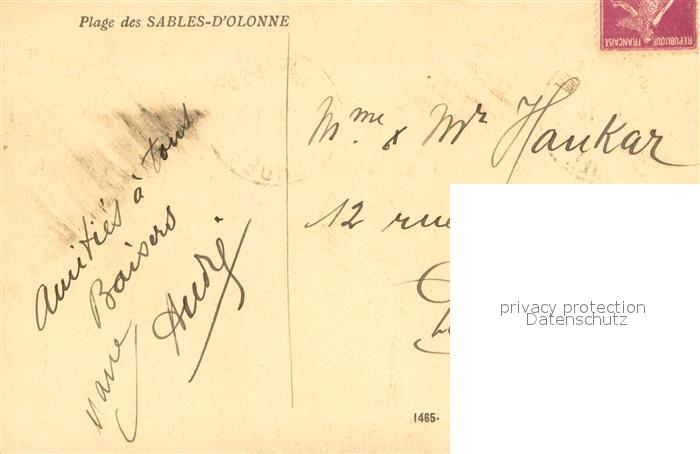 Plage des SABLES-D'OLONNE
REPUBLIQUE FRANÇAISE
Amitiés à tous
Baisers
André
Mme & Mr Hankar
12 rue
privacy protection
Datenschutz
1465.